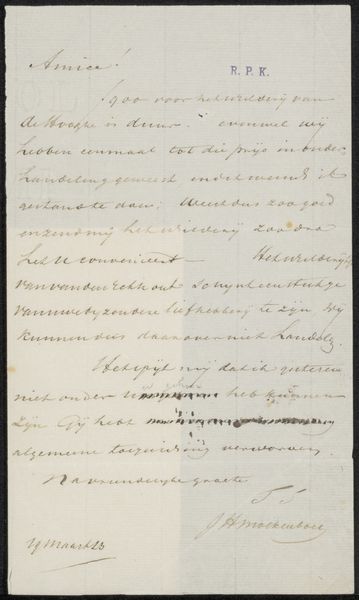 Amice!
R. P. K.
f 900 voor het schilderij van
de Hooghe is duur. evenwel wij
hebben eenmaal tot die prijs in onder
handeling geweest en dit wensch ik
gestant te doen. Weest dus zoo goed
en zend mij het schilderij zoodra
het U convenieert Het schilderijtje
van van den Eekhout schijnt een stukje
van uwe byzondere liefhebberij te zijn wij
kunnen dus daarover niet handelen.
Het spijt mij dat ik gisteren
niet onder uw gehoor heb kunnen
zijn Gij hebt
algemene toejuiching verworven.
Na vriendelijke groete
TT
J H Molkenboer
29 Maart